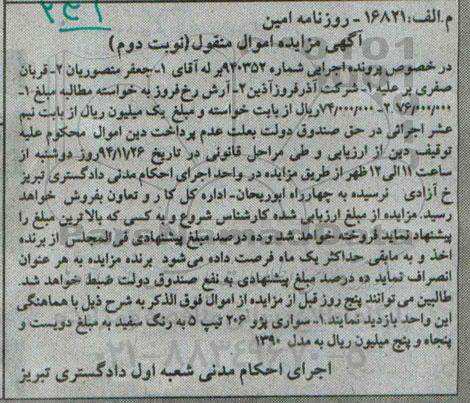 م.الف:۱۶۸۲۱ - روزنامه امین
آگهی مزایده اموال منقول(نوبت دوم)
در خصوص پرونده اجرایی شماره ۹۴۰۳۵۲بر له آقای ۱-جعفر منصوریان ۲-قربان
صفری بر علیه ۱-شرکت آذرفروز آذین۲-آرش رخ‌فروز به خواسته مطالبه مبلغ ۱-
۷۶/۰۰۰/۰۰۰ ۲-۷۴/۰۰۰/۰۰۰ریال از بابت خواسته و مبلغ یک میلیون ریال از بابت نیم
عشر اجرائی در حق صندوق دولت بعلت عدم پرداخت دین اموال محکوم علیه
توقیف دین از ارزیابی و طی مراحل قانونی در تاریخ ۹۴/۱۱/۲۶روز دوشنبه از
ساعت ۱۱الی۱۲ ظهر از طریق مزایده در واحد اجرای احکام مدنی دادگستری تبریز
خ آزادی نرسیده به چهارراه ابوریحان- اداره کل کار و تعاون بفروش خواهد
رسید. مزایده از مبلغ ارزیابی شده کارشناس شروع و به کسی که بالاترین مبلغ را
پیشنهاد نماید فروخته خواهد شد و ده درصد مبلغ پیشنهادی فی المجلس از برنده
اخذ و به مابقی حداکثر یک ماه فرصت داده می‌شود برنده مزایده به هر عنوان
انصراف نماید ده درصد مبلغ پیشنهادی به نفع صندوق دولت ضبط خواهد شد.
طالبین می‌توانند پنج روز قبل از مزایده از اموال فوق الذکر به شرح ذیل با هماهنگی
این واحد بازدید نمایند ۱- سواری پژو ۲۰۶ تیپ ۵ به رنگ سفید به مبلغ دویست و
پنجاه و پنج میلیون ریال به مدل ۱۳۹۰
اجرای احکام مدنی شعبه اول دادگستری تبریز
۰۲۱-۸۸۳۴۹۶۷۰-۵